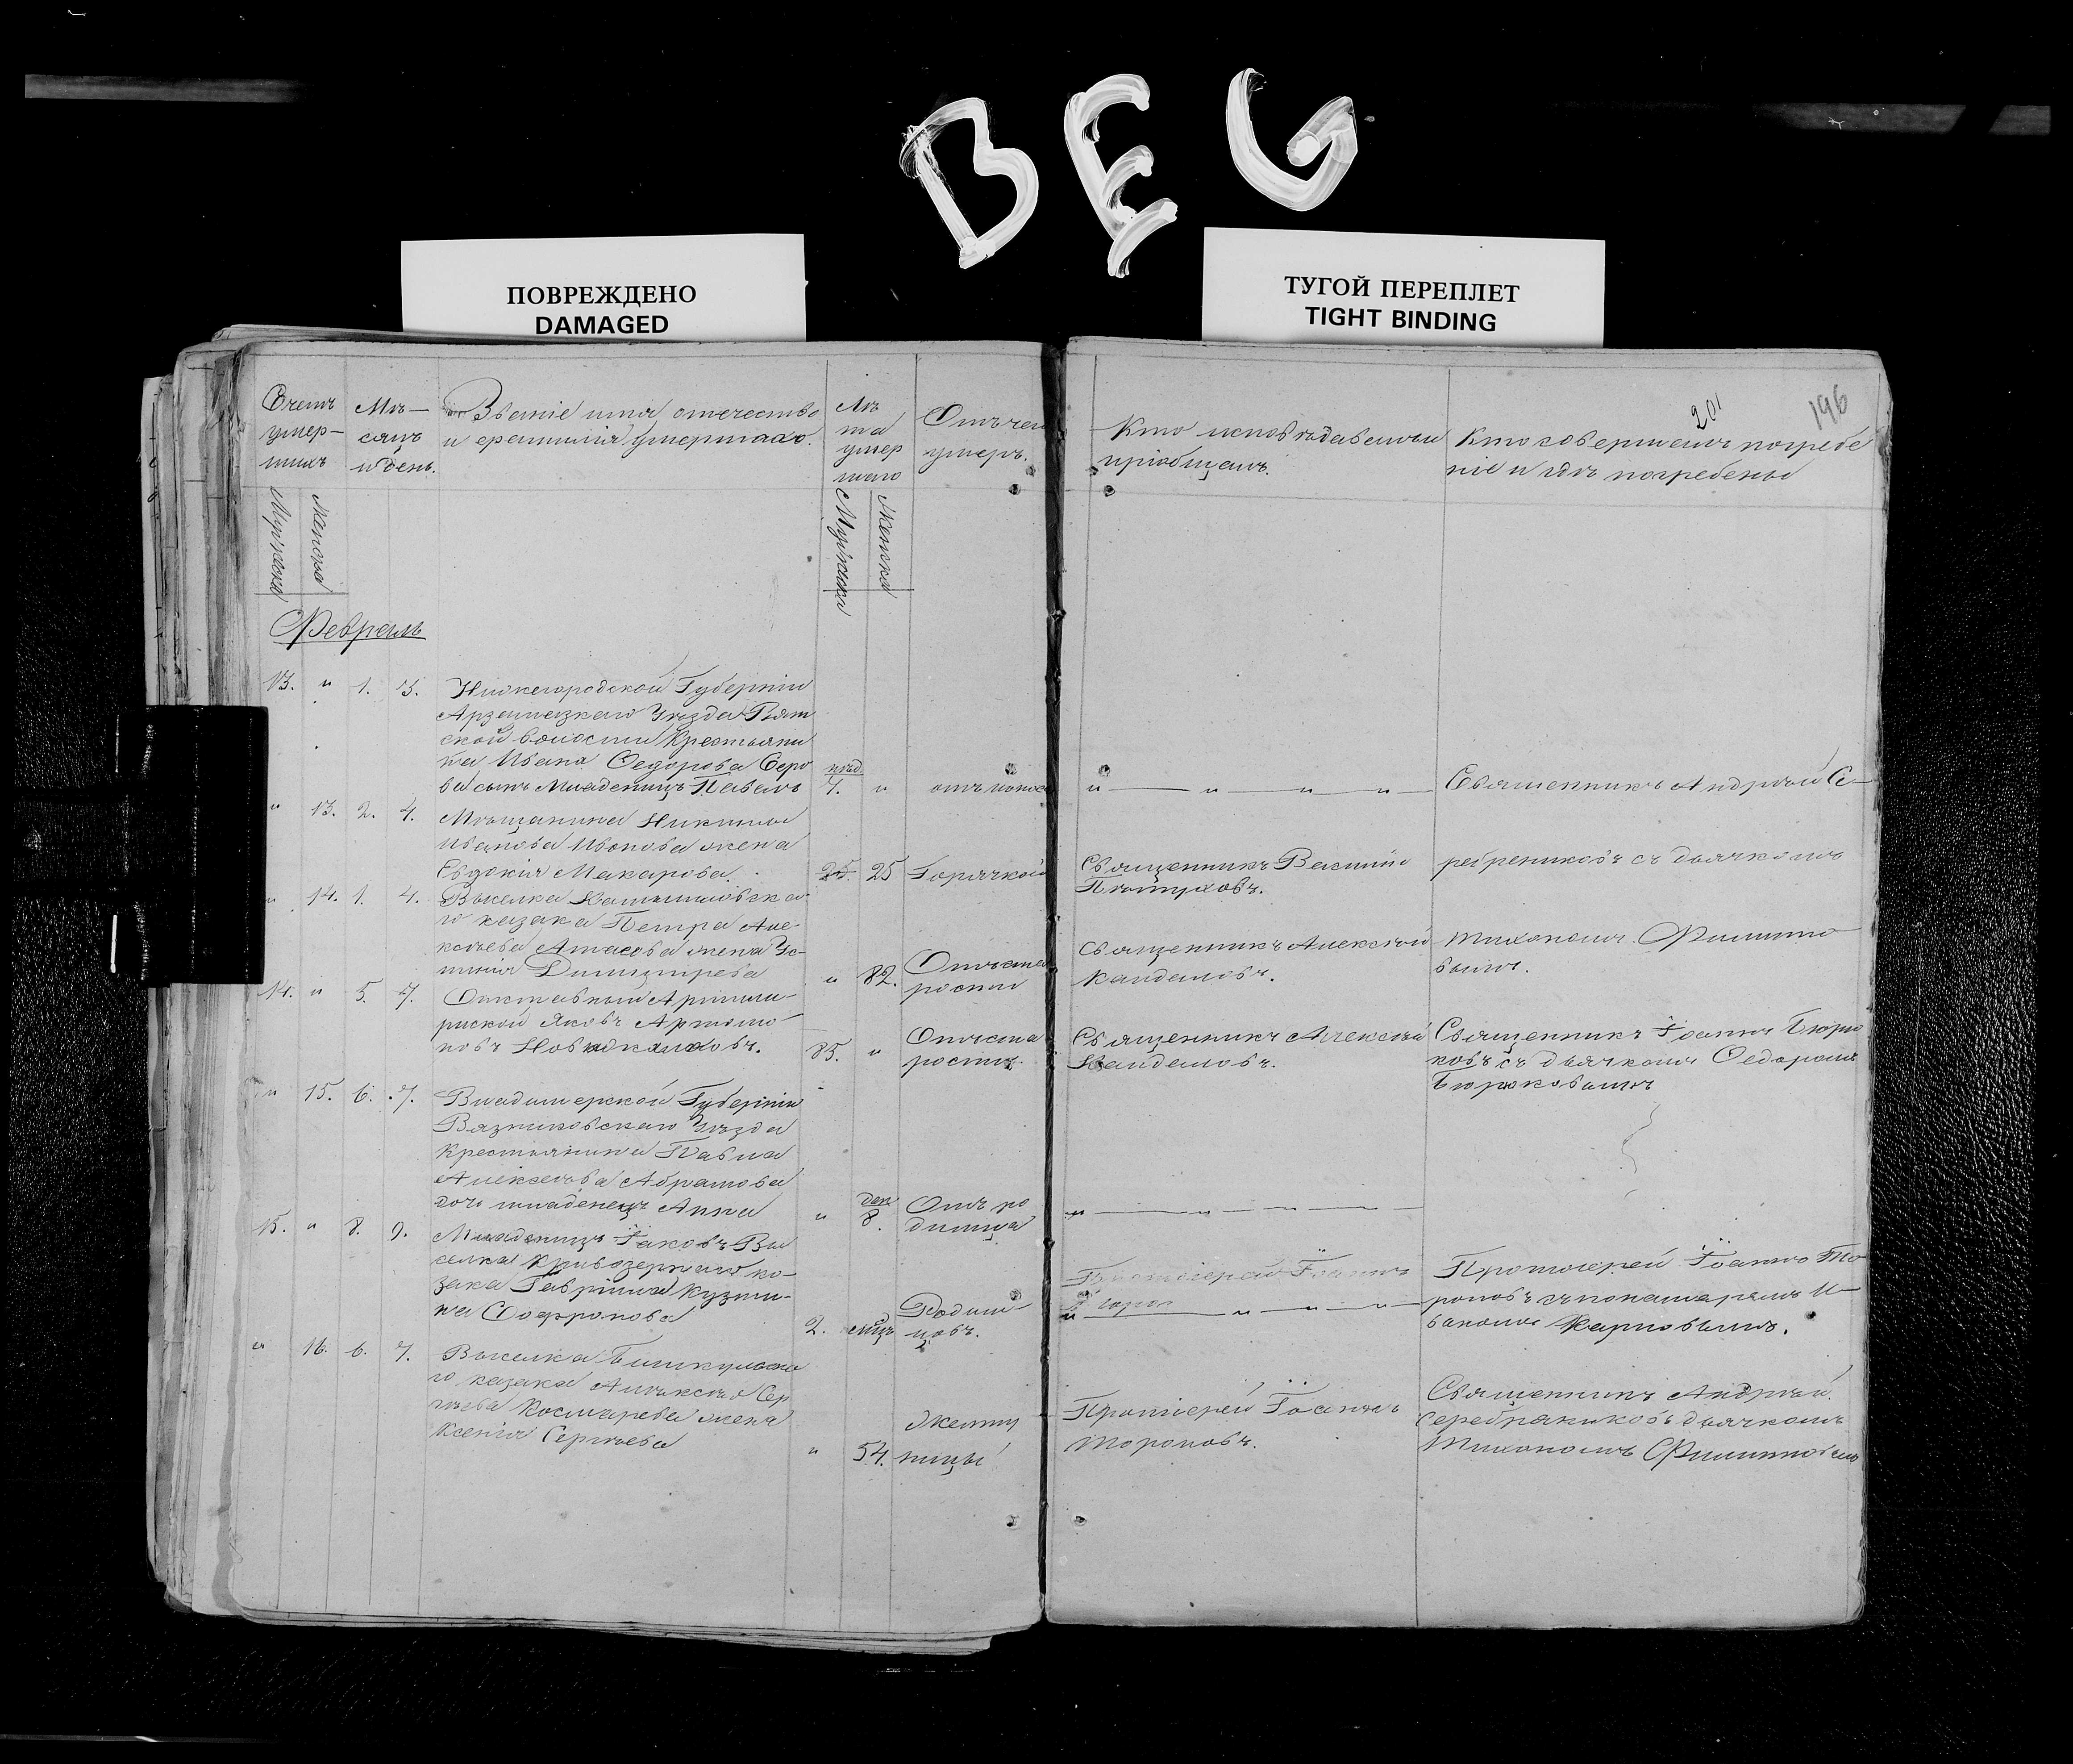 BEG
ПОВРЕЖДЕНО
DAMAGED
ТУГОЙ ПЕРЕПЛЕТ
TIGHT BINDING
201
196
Счетъ
умер-
шихъ
Мѣ-
сяцъ
и день.
Званіе имя отчество
и фамилія умершаго.
Лѣ
та
умер
шаго
Отъ чего
умеръ.
Кто исповѣдавалъ и
пріобщалъ.
Кто совершалъ погребе
ніе и гдѣ погребены
Мужска
Женска
Мужска
Женска
Февраль
13. " 1. 3. Нижегородской Губерніи
Арзамазкаго Уѣзда
ской волости Крестьяни
на Ивана Седорова Серо
ва сынъ Младенецъ Павелъ
нѣд.
7. " отъ поноса
" — " — " — " —
Священникъ Андрей Се-
" 13. 2. 4. Мѣщанина Никиты
Иванова Ивонова жена
Евдокія Макарова.
25. 25 Горячкой
Священникъ Василій
Пѣтуховъ.
ребрениковъ съ дьячкомъ
" 14. 1. 4. Выселка
го казака Петра Але-
ксѣева жена Ус-
тинія Димитрева
" 82. Отъ ста
рости
Священникъ Алексѣй
Кандаловъ.
Тихономъ Филиппо
вымъ.
14. " 5. 7. Отставный Артилле-
рискій Яковъ Артамо
новъ
85. " Отъ ста
рости.
Священникъ Алексѣй
Кандаловъ.
Священникъ Іоаннъ Бирю
ковъ съ дьячкомъ Седоромъ
Бирюковымъ
" 15. 6. 7. Владимерской Губерніи
Вязниковскаго Уѣзда
Крестьянина Павла
Алексѣева Абрамова
дочь младенецъ Анна
" дан
8. Отъ ро
димца
" — " — " —
15. " 8. 9. Младенецъ Іаковъ Вы
селка Кривозернаго ка-
зака Гавріила Кузми-
на Софронова
2. Родим-
цовъ.
Протоіерей Іоаннъ
" — " — " — " —
Протоіерей Іоаннъ То
роповъ съ понамаремъ И-
ваномъ Карповымъ.
" 16. 6. 7. Выселка Бишкульска
го казака Алѣксѣя Сер
гѣева Космарева жена
Ксенія Сергѣева
" 54. Желту
ницы
Протіерей Іоаннъ
Тороповъ.
Священникъ Андрей
Серебряниковъ дьячкомъ
Тихономъ Филиповымъ